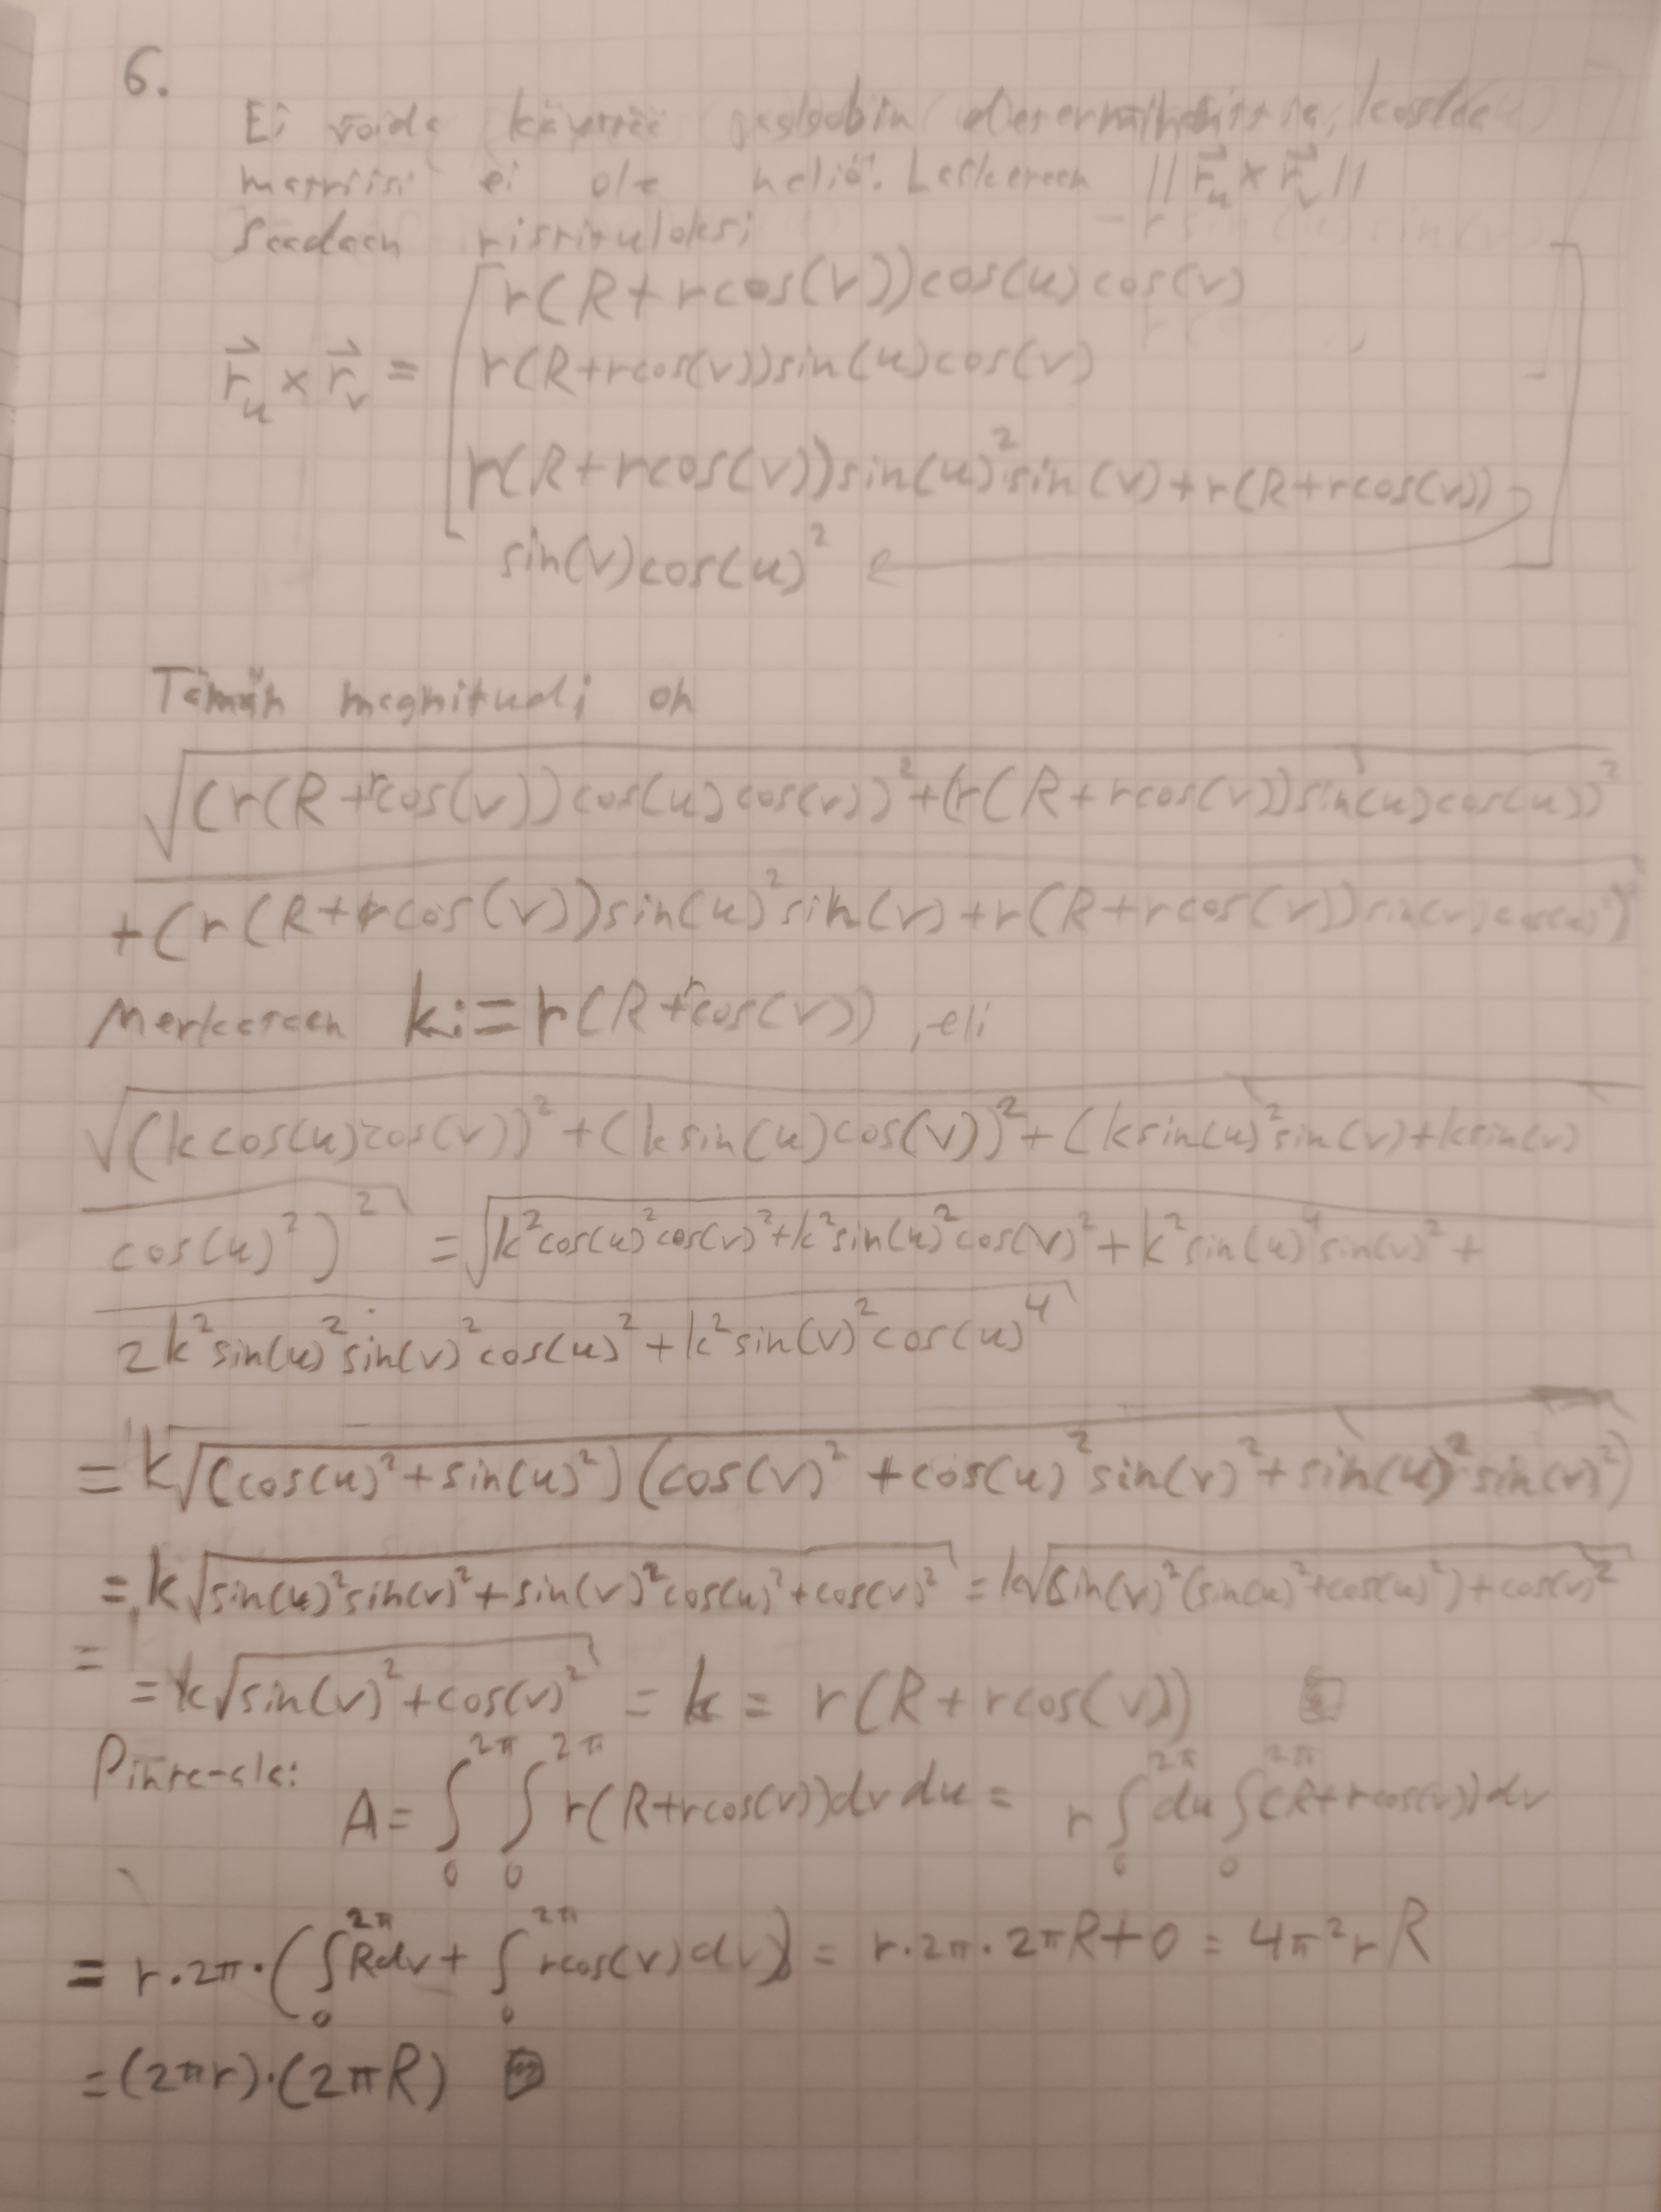 6.
Ei voida käyttää jacobin determinanttia, koska
matriisi ei ole neliö. Lasketaan ||r⃗_u × r⃗_v||
Saadaan ristituloksi
r(R+rcos(v))cos(u)cos(v)
r⃗_u × r⃗_v = r(R+rcos(v))sin(u)cos(v)
r(R+rcos(v))sin(u)²sin(v)+r(R+rcos(v))
sin(v)cos(u)²
Tämän magnitudi on
√((r(R+rcos(v))cos(u)cos(v))²+(r(R+rcos(v))sin(u)cos(u))²
+(r(R+rcos(v))sin(u)²sin(v)+r(R+rcos(v))sin(v)cos(u)²)²
Merkataan k:=r(R+rcos(v)), eli
√(kcos(u)cos(v))²+(ksin(u)cos(v))²+(ksin(u)²sin(v)+ksin(v)
cos(u)²)² =√k²cos(u)²cos(v)²+k²sin(u)²cos(v)²+k²sin(u)⁴sin(v)²+
2k²sin(u)²sin(v)²cos(u)²+k²sin(v)²cos(u)⁴
=k√(cos(u)²+sin(u)²)(cos(v)²+cos(u)²sin(v)²+sin(u)²sin(v)²)
=k√sin(u)²sin(v)²+sin(v)²cos(u)²+cos(v)² =k√sin(v)²(sin(u)²+cos(u)²)+cos(v)²
=
=k√sin(v)²+cos(v)² = k = r(R+rcos(v))
Pinta-ala:
A=∫₀^2π ∫₀^2π r(R+rcos(v))dvdu = r∫₀^2π du∫₀^2π (R+rcos(v))dv
= r·2π·(∫₀^2π Rdv+∫₀^2π rcos(v)dv) = r·2π·2πR+0 = 4π²rR
=(2πr)·(2πR)